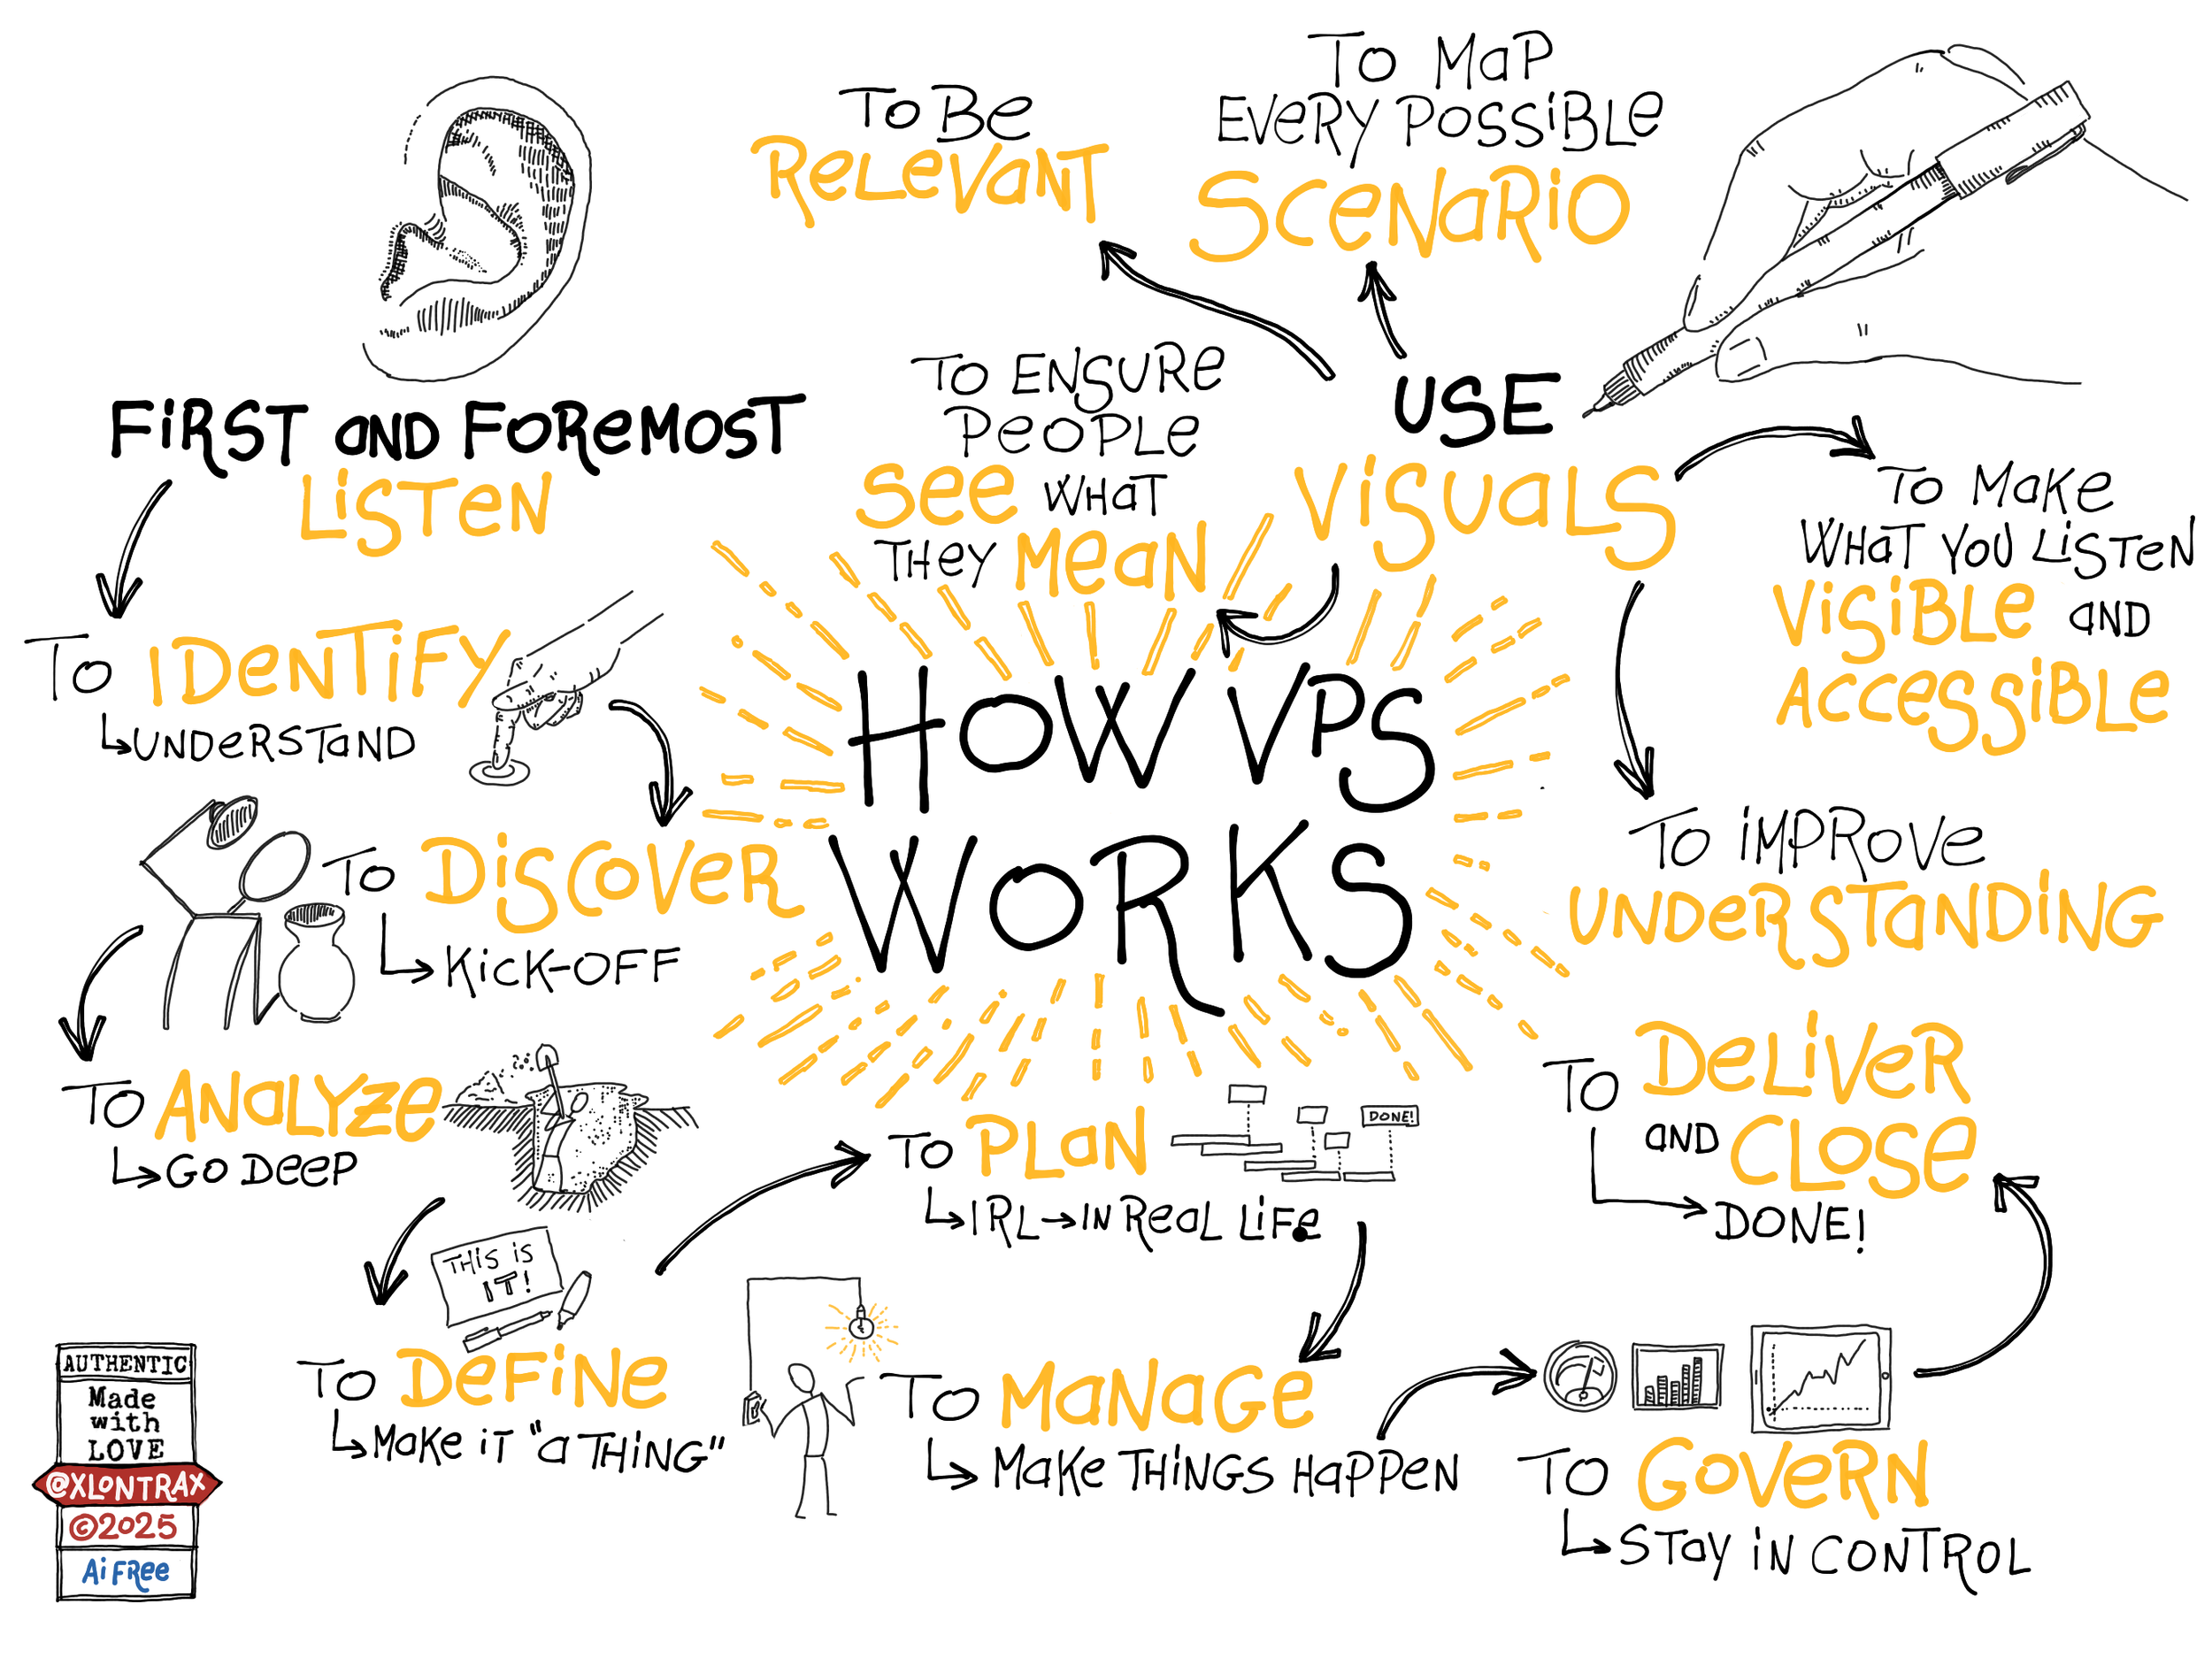 HOW VPS
WORKS
FIRST AND FOREMOST
LISTEN
TO IDENTIFY
UNDERSTAND
TO DISCOVER
KICK-OFF
TO ANALYZE
GO DEEP
THIS IS
IT!
TO DEFINE
MAKE IT "A THING"
TO PLAN
DONE!
IRL→IN REAL LIFE
TO MANAGE
MAKE THINGS HAPPEN
TO GOVERN
STAY IN CONTROL
TO DELIVER
AND CLOSE
DONE!
USE
VISUALS
TO BE
RELEVANT
TO MAP
EVERY POSSIBLE
SCENARIO
TO ENSURE
PEOPLE
SEE WHAT
THEY MEAN
TO MAKE
WHAT YOU LISTEN
VISIBLE AND
ACCESSIBLE
TO IMPROVE
UNDERSTANDING
AUTHENTIC
Made
with
LOVE
@XLONTRAX
©2025
Ai FREE